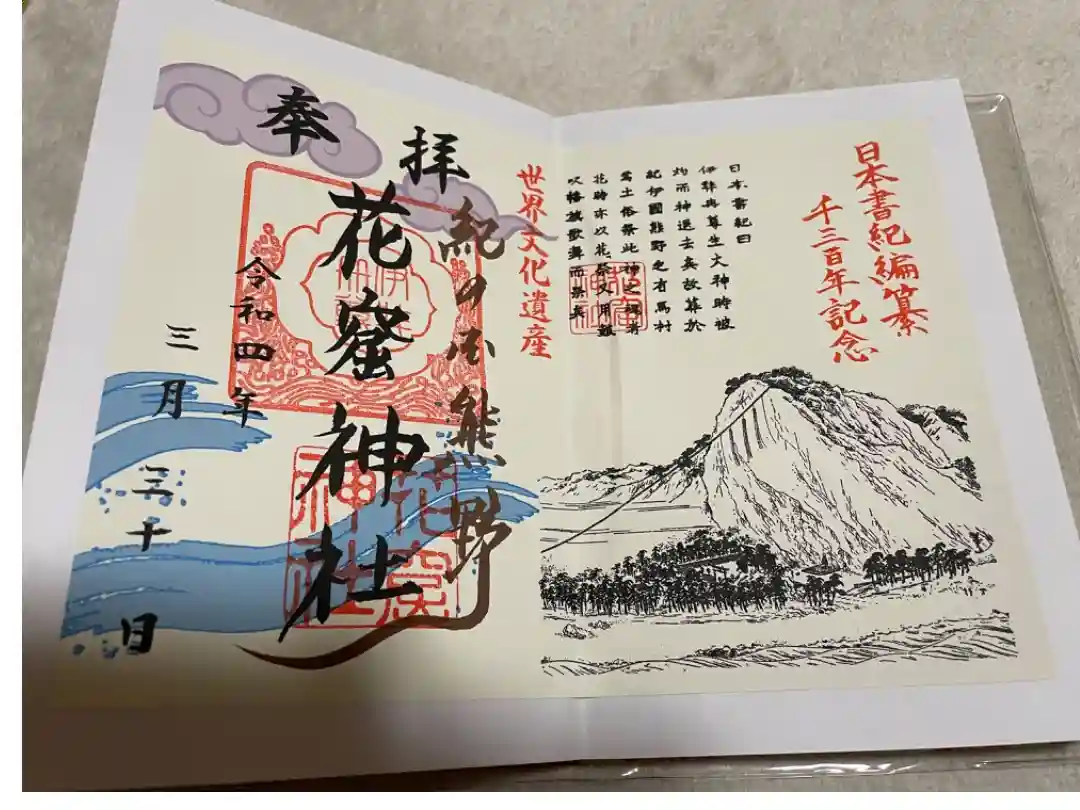 日本書紀編纂
千三百年記念
日本書紀曰
伊弉冉尊生火神時被
灼而神退去矣故葬於
紀伊國熊野之有馬村
焉土俗祭此神之魂者
花時亦以花祭又用鼓
吹幡旗歌舞而祭矣
世界文化遺産
奉拝
紀の国熊野
花窟神社
花窟神社
令和四年
三月三十日